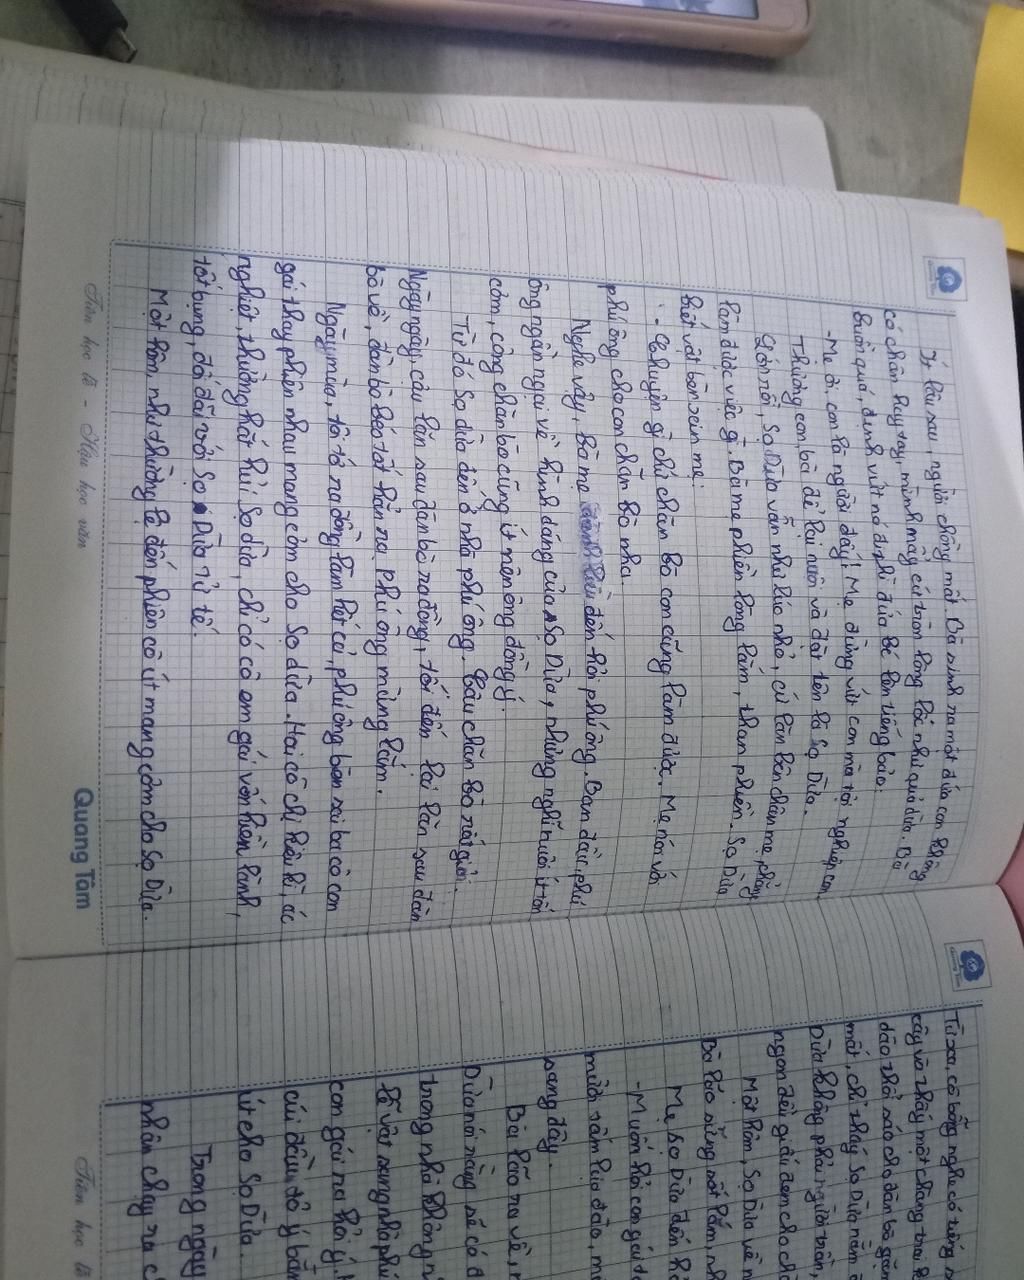 Ít lâu sau, người chồng mất. Bà sinh ra một đứa con không
có chân hay tay, mình mẩy cứ tròn lông lốc như quả dừa. Bà
buồn quá, định vứt nó đi thì đứa bé lên tiếng bảo:
- Mẹ ơi, con là người đấy! Mẹ đừng vứt con mà tội nghiệp con.
Thương con, bà để lại nuôi và đặt tên là Sọ Dừa.
Lớn rồi, Sọ Dừa vẫn như lúc nhỏ, cứ lăn bên chân mẹ, chẳng
làm được việc gì. Bà mẹ phiền lòng lắm, than phiền. Sọ Dừa
biết vậy bèn xin mẹ:
- Chuyện gì chứ chăn bò con cũng làm được. Mẹ nói với
phú ông cho con chăn bò nha
Nghe vậy, bà mẹ đến hỏi phú ông. Ban đầu, phú
ông ngần ngại về hình dáng của Sọ Dừa, nhưng nghĩ nuôi ít tốn
cơm, công chăn bò cũng ít nên ông đồng ý.
Từ đó Sọ dừa đến ở nhà phú ông. Cậu chăn bò rất giỏi.
Ngày ngày, cậu lăn sau đàn bò ra đồng, tối đến lại lăn sau đàn
bò về, đàn bò béo tốt hẳn ra. Phú ông mừng lắm.
Ngày mùa, tôi tớ ra đồng làm hết cả, phú ông bèn sai ba cô con
gái thay phiên nhau mang cơm cho Sọ dừa. Hai cô chị kiêu kì, ác
nghiệt, thường hắt hủi Sọ dừa, chỉ có cô em gái vốn hiền lành,
tốt bụng, đối đãi với Sọ Dừa tử tế.
Một lần, như thường lệ đến phiên cô út mang cơm cho Sọ Dừa.
Tiên học lễ - Hậu học văn
Quang Tâm
Từ xa, cô bỗng nghe có tiếng
cây và thấy một chàng trai
đào thổi sáo cho đàn bò gặm
mất, chỉ thấy Sọ Dừa nằm
Dừa không phải người trần,
ngon đều giấu đem cho
Một hôm, Sọ Dừa về
Bà lão sửng sốt lắm,
Mẹ Sọ Dừa đến
- Muốn hỏi con gái
mười tấm lụa đào,
sang đây.
Bà lão ra về,
Dừa nói rằng sẽ có
trong nhà không
lễ vật sang nhà phú
con gái ra hỏi ý.
cúi đầu tỏ ý bằng
út cho Sọ Dừa.
Trong ngày
nhân chạy ra
Tiên học lễ